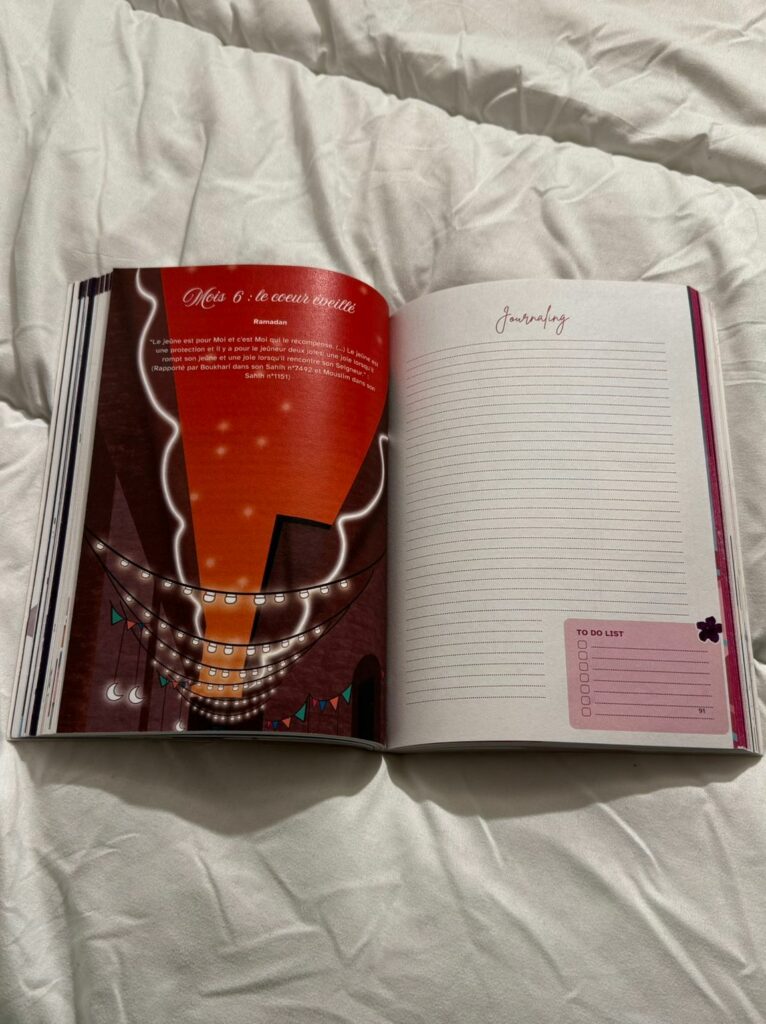 Mois 6 : le coeur éveillé
Ramadan
"Le jeûne est pour Moi et c'est Moi qui le récompense. (...) Le jeûne est
une protection et il y a pour le jeûneur deux joies, une joie lorsqu'il
rompt son jeûne et une joie lorsqu'il rencontre son Seigneur."
(Rapporté par Boukhari dans son Sahih n°7492 et Mouslim dans son
Sahih n°1151)
Journaling
TO DO LIST
91